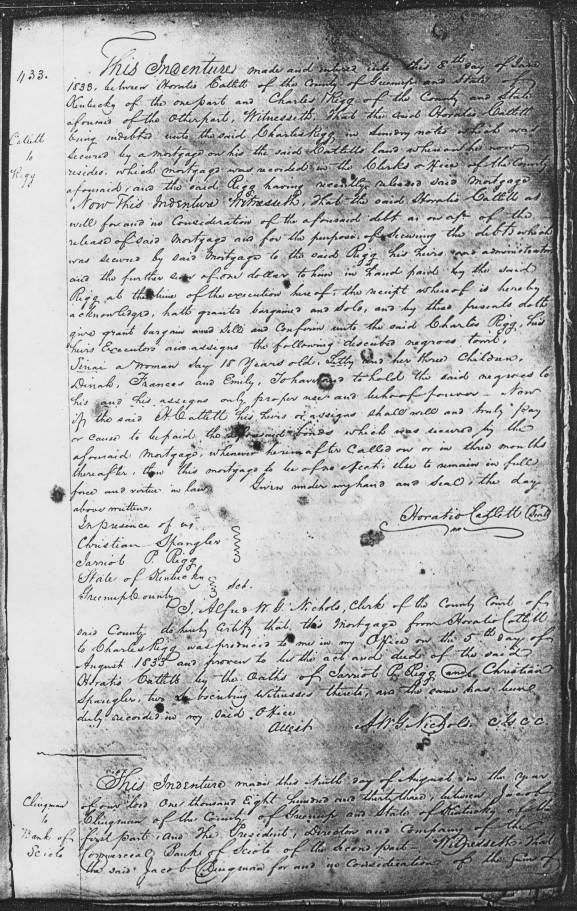 433.
This Indenture made and entered into this 8th day of June
1833, between Horatio Catlett of the County of Greenup and State of
Kentucky of the one part and Charles Rigg of the County and State
aforesaid of the other part, Witnesseth, That the said Horatio Catlett
being indebted unto the said Charles Rigg in sundry notes which was
Catlett
to
Rigg
secured by a mortgage on his the said Catletts land whereon he now
resides, which mortgage was recorded in the Clerks office of the County
aforesaid, and the said Rigg having recently released said Mortgage
Now This Indenture Witnesseth, That the said Horatio Catlett as
well for and in Consideration of the aforesaid debt as on aft of the
release of said Mortgage and for the purpose of securing the debts which
was secured by said Mortgage to the said Rigg his heirs and administrators
and the further sum of one dollar to him in hand paid by the said
Rigg at the time of the execution hereof, the receipt whereof is hereby
acknowledged, hath granted bargained and sold, and by these presents doth
give grant bargain and sell and Confirm unto the said Charles Rigg, his
heirs Executors and assigns the following described negroes towit,
a Woman say 18 Years old, and her three Children,
Dinah, Frances and Emily, To have and to hold the said negroes to
his and his assigns only proper use and behoof forever - Now
if the said H Catlett his heirs or assigns shall well and truly pay
or cause to be paid the aforesaid bonds which was secured by the
aforesaid Mortgage, whenever hereinafter Called on or in three months
thereafter, then this mortgage to be of no effect, else to remain in full
force and virtue in law. Given under my hand and seal, the day
above written.
In presence of us
Horatio Catlett (Seal)
Christian Spangler
Jarriot P. Rigg
State of Kentucky
Greenup County Sct.
I, Alfred W. G. Nichols, Clerk of the County Court of
said County do hereby Certify that, this Mortgage from Horatio Catlett
to Charles Rigg was produced to me in my Office on the 5th day of
August 1833 and proven to be the act and deed of the said
Horatio Catlett by the Oaths of Jarriot P. Rigg and Christian
Spangler, two subscribing witnesses thereto, and the same has been
duly recorded in my said Office
Attest A W G Nichols C. G. C. C
Clingman
to
Bank of
Scioto
This Indenture made this Ninth day of August, in the year
of our lord One thousand Eight hundred and thirty three, between Jacob
Clingman of the County of Greenup and State of Kentucky of the
first part, and The President, Directors and Company of the
Commercial Bank of Scioto of the second part - Witnesseth, That
the said Jacob Clingman for and in Consideration of the sum of